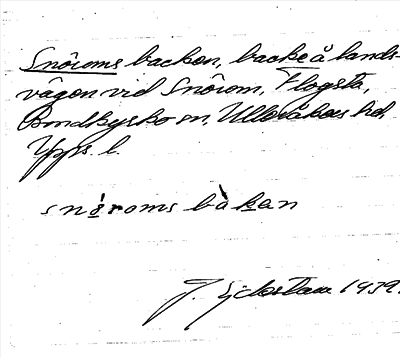 Snöroms backen, backe å lands-
vägen vid Snörom, Flogsta,
Bondkyrko sn, Ulleråkers hd,
Upps. l.
snǿroms bàkan
J. 1939.